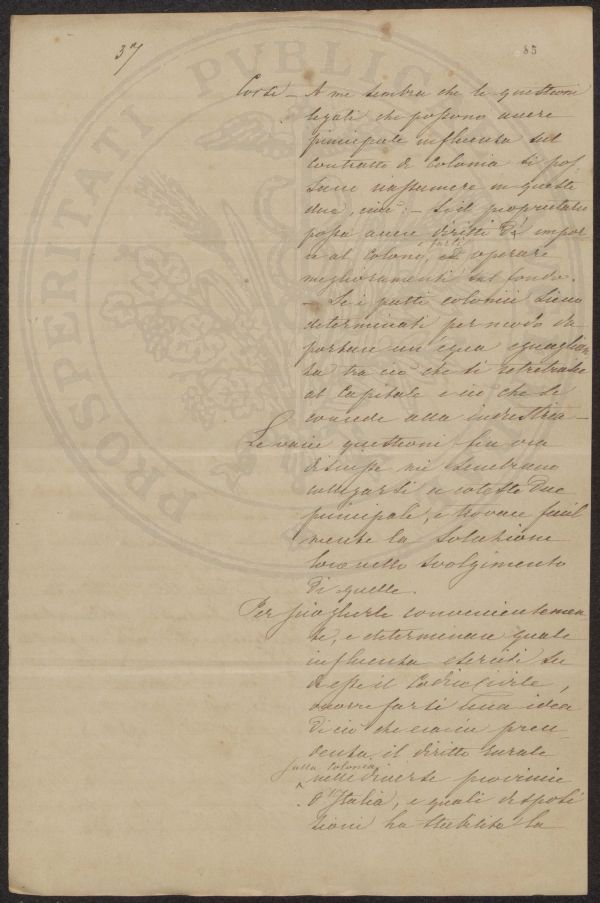 3ª/
85
PROSPERITATI PUBLICAE
Corsi – A me sembra che le questioni
legali che possono avere
principale influenza sul
contratto di Colonia si pos
sano riassumere in queste
due, cioè: – Se il proprietario
possa avere diritti di impor
re al Colono, di operare
miglioramenti sul fondo.
– Se i patti colonici sieno
determinati per modo da
portare un'equa eguaglian
za tra ciò che si retribuisce
al Capitale e ciò che si
concede alla industria –
Le varie questioni fin ora
discusse mi sembrano
collegarsi a coteste due
principale, e trovare facil
mente la soluzione
loro nello svolgimento
di quelle.
Per scioglierle convenientemen
te, e determinare quale
influenza eserciti su
d'esse il Codice Civile,
occorre farsi una idea
di ciò che era in prece
denza il diritto rurale
sulla Colonia
nelle diverse provincie
d'Italia, e quali disposi
zioni ha stabilito la